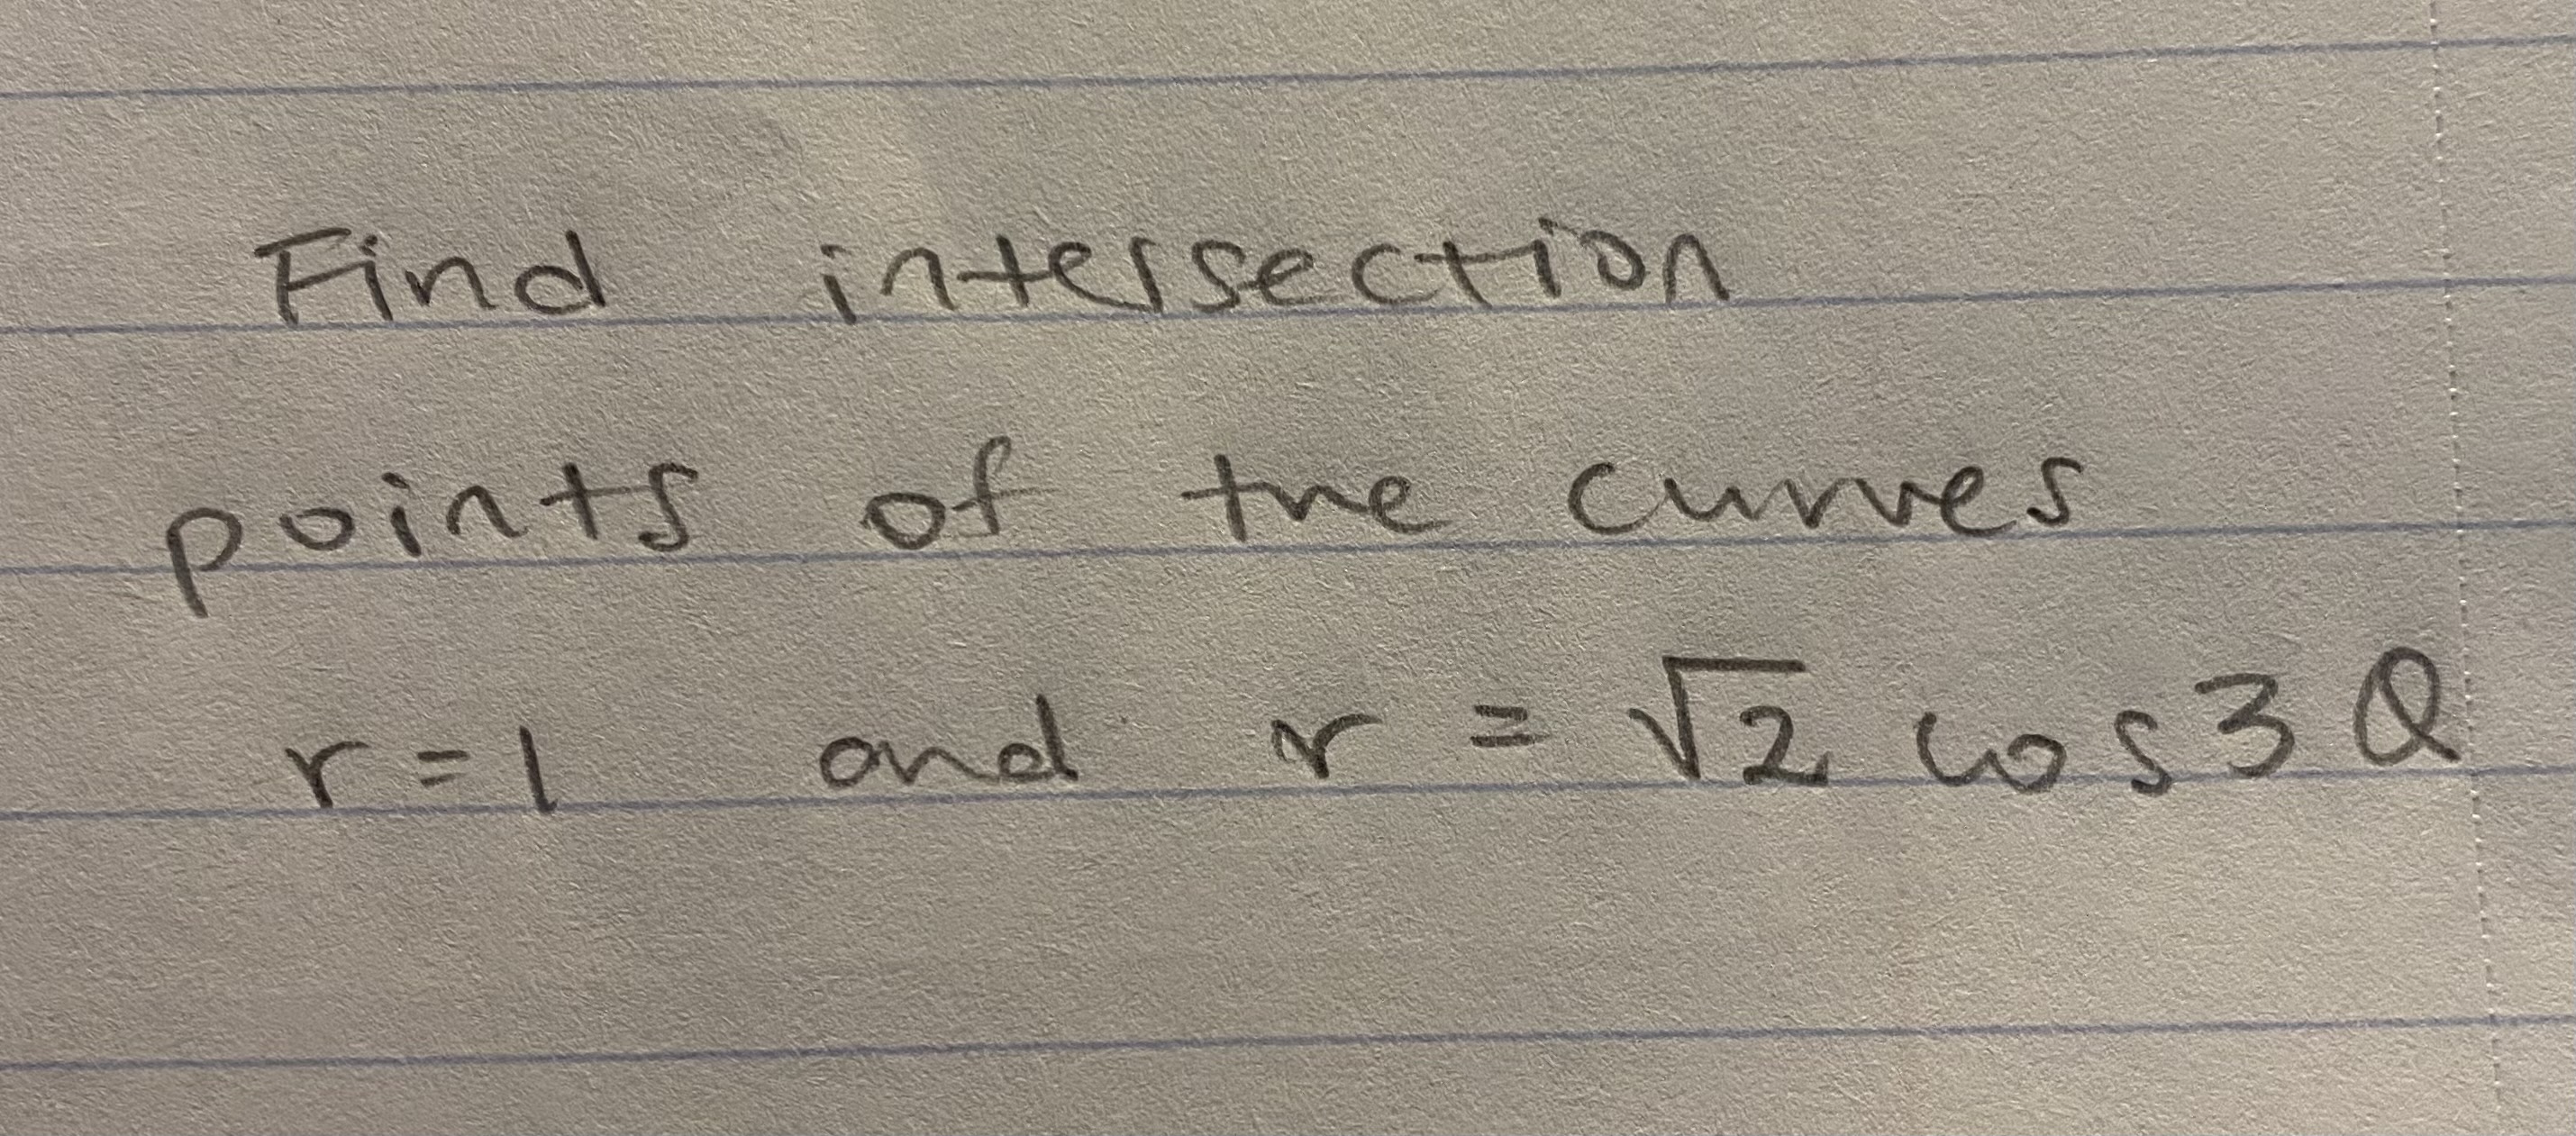 Find intersection
points of the curves
r = 1 and r = √2 cos 3θ